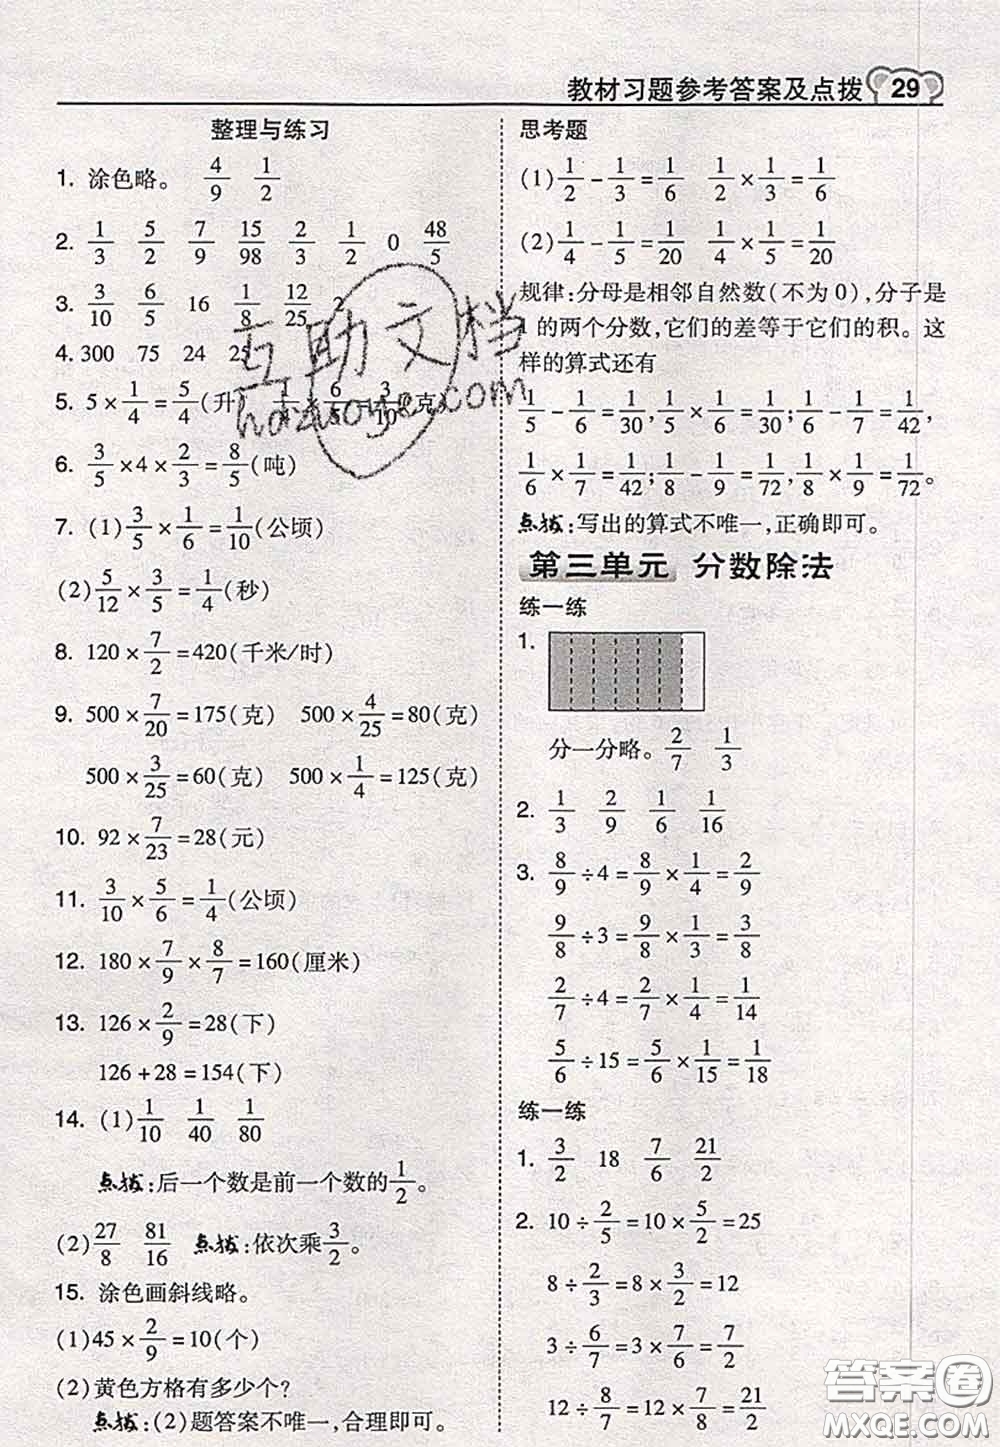 教材习题参考答案及点拨 29
整理与练习
1. 涂色略。 4/9 1/2
2. 1/3 5/2 7/9 15/98 2/3 1/2 0 48/5
3. 3/10 6/5 16 1/8 12/25 2
4. 300 75 24 25
5. 5×1/4=5/4(升) 1/4×6/5=3/10(克)
6. 3/5×4×2/3=8/5(吨)
7. (1)3/5×1/6=1/10(公顷)
(2)5/12×3/5=1/4(秒)
8. 120×7/2=420(千米/时)
9. 500×7/20=175(克) 500×4/25=80(克)
500×3/25=60(克) 500×1/4=125(克)
10. 92×7/23=28(元)
11. 3/10×5/6=1/4(公顷)
12. 180×7/9×8/7=160(厘米)
13. 126×2/9=28(下)
126+28=154(下)
14. (1)1/10 1/40 1/80
点拨:后一个数是前一个数的1/2。
(2)27/8 81/16 点拨:依次乘3/2。
15. 涂色画斜线略。
(1)45×2/9=10(个)
(2)黄色方格有多少个?
点拨:(2)题答案不唯一,合理即可。
思考题
(1)1/2-1/3=1/6 1/2×1/3=1/6
(2)1/4-1/5=1/20 1/4×1/5=1/20
规律:分母是相邻自然数(不为0),分子是
1的两个分数,它们的差等于它们的积。这
样的算式还有
1/5-1/6=1/30,1/5×1/6=1/30;1/6-1/7=1/42,
1/6×1/7=1/42;1/8-1/9=1/72,1/8×1/9=1/72。
点拨:写出的算式不唯一,正确即可。
第三单元 分数除法
练一练
1.
分一分略。2/7 1/3
2. 1/3 2/9 1/6 1/16
3. 8/9÷4=8/9×1/4=2/9
9/8÷3=9/8×1/3=3/8
2/7÷4=2/7×1/4=1/14
5/6÷15=5/6×1/15=1/18
练一练
1. 3/2 18 7/6 21/2
2. 10÷2/5=10×5/2=25
8÷2/3=8×3/2=12
3÷6/7=3×7/6=7/2
12÷8/7=12×7/8=21/2
互助文档
hazuowe.com
答案圈
MXQE.COM